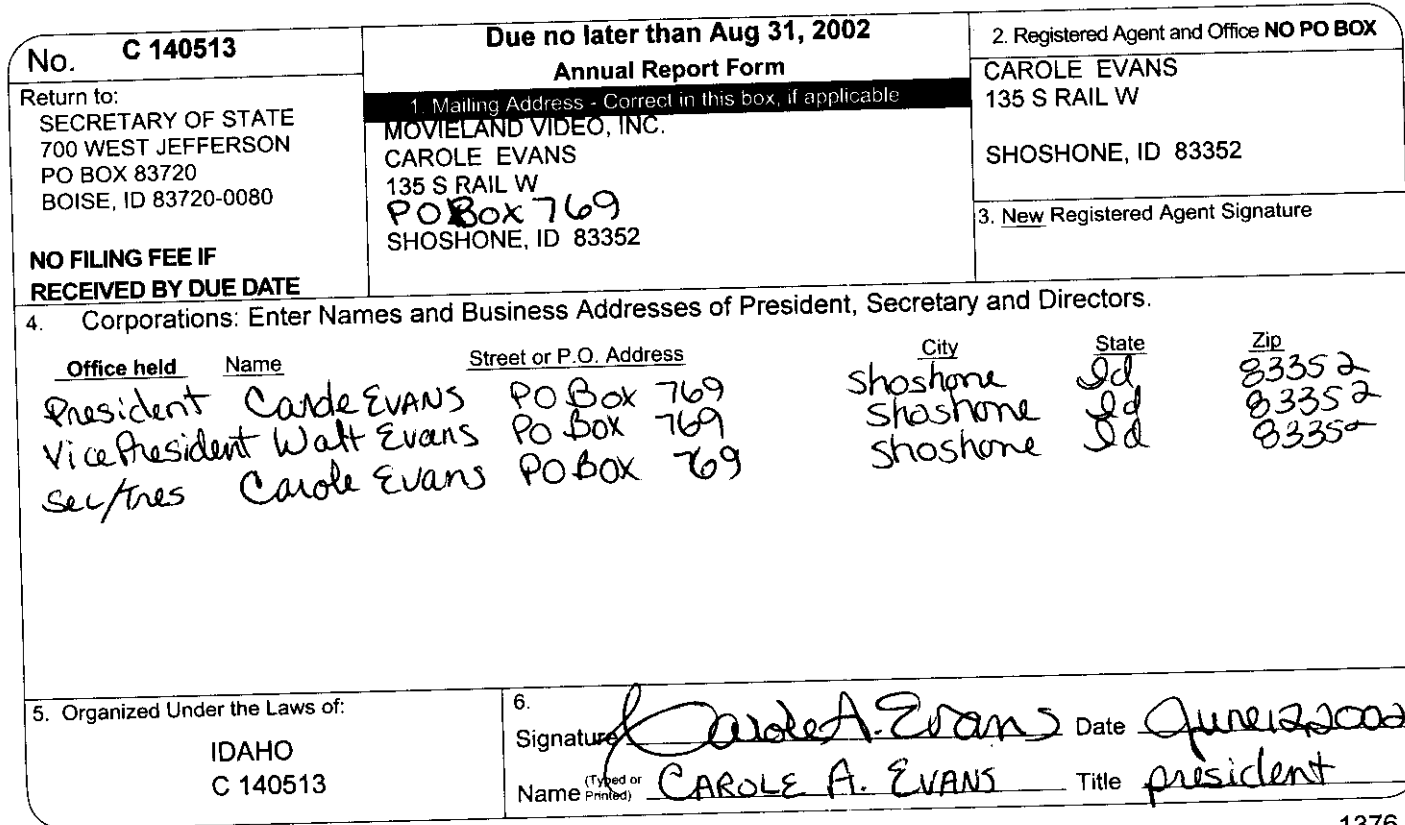 No. C 140513
Return to:
SECRETARY OF STATE
700 WEST JEFFERSON
PO BOX 83720
BOISE, ID 83720-0080
NO FILING FEE IF
RECEIVED BY DUE DATE
Due no later than Aug 31, 2002
Annual Report Form
1. Mailing Address - Correct in this box, if applicable
MOVIELAND VIDEO, INC.
CAROLE EVANS
135 S RAIL W
PO Box 769
SHOSHONE, ID 83352
2. Registered Agent and Office NO PO BOX
CAROLE EVANS
135 S RAIL W
SHOSHONE, ID 83352
3. New Registered Agent Signature
4. Corporations: Enter Names and Business Addresses of President, Secretary and Directors.
Office held Name Street or P.O. Address City State Zip
President Carole Evans PO Box 769 Shoshone Id 83352
Vice President Walt Evans PO Box 769 Shoshone Id 83352
Sec/Tres Carole Evans PO Box 769 Shoshone Id 83352
5. Organized Under the Laws of:
IDAHO
C 140513
6.
Signature Carole A. Evans Date June 12 2002
Name (Typed or Printed) CAROLE A. EVANS Title president
1376